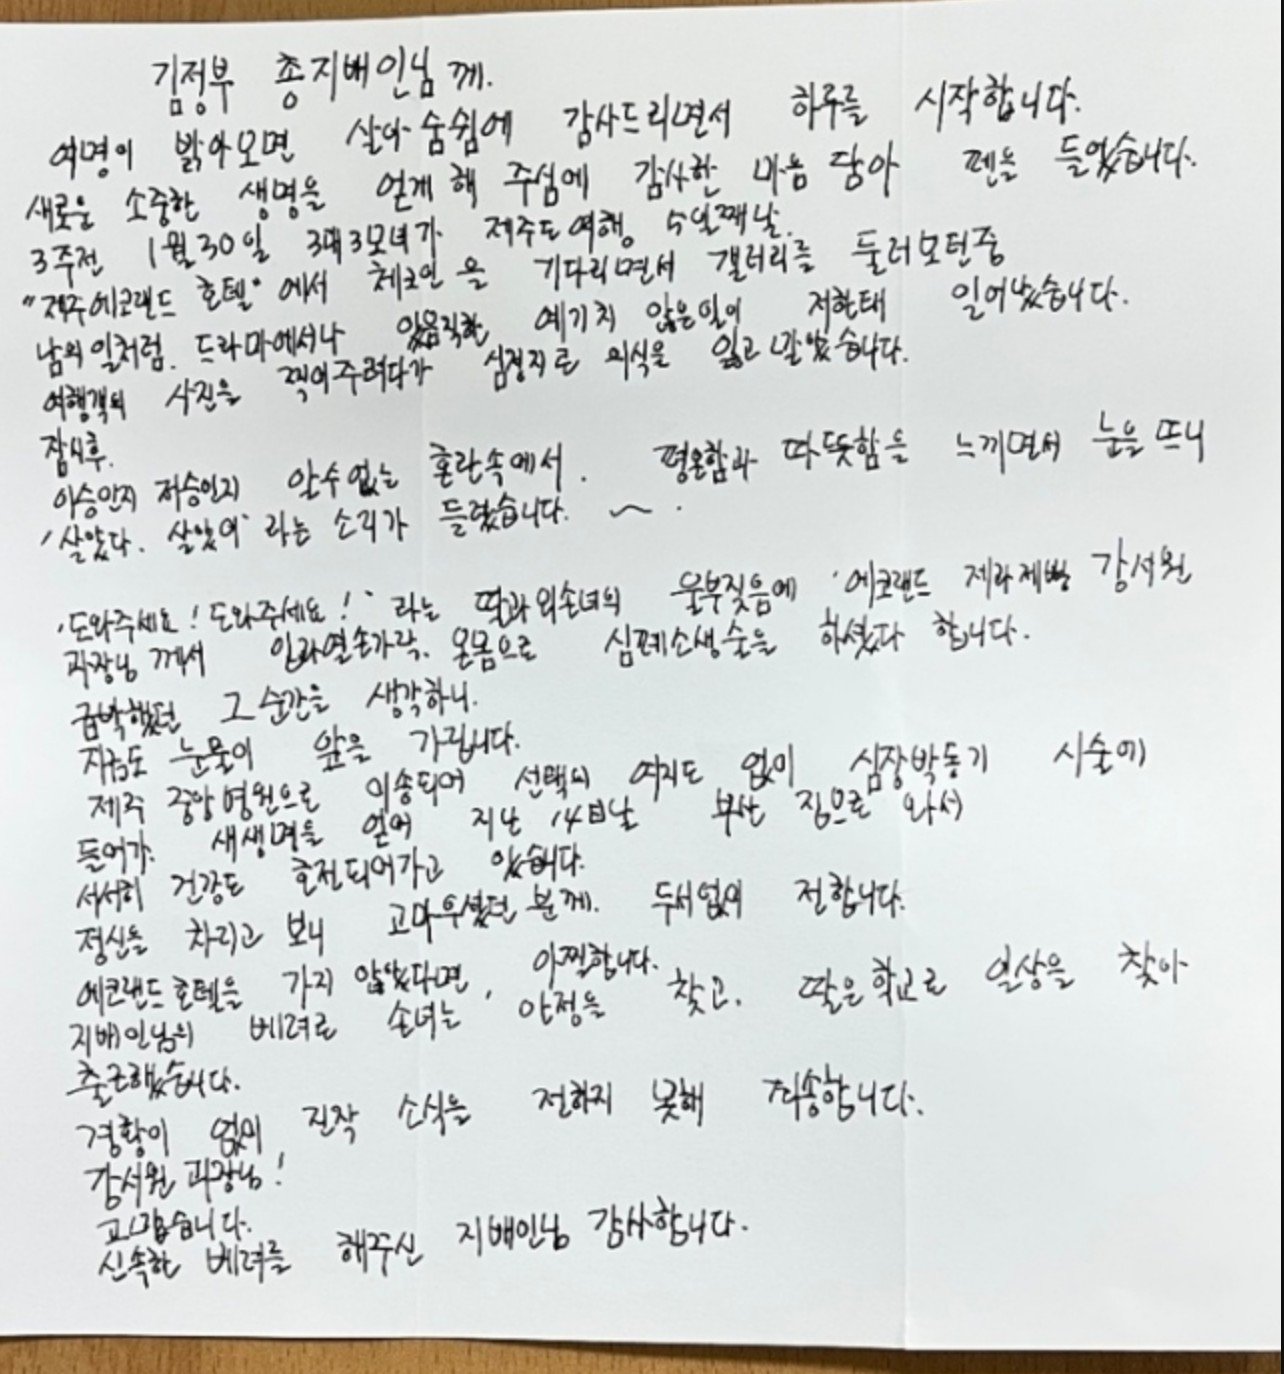 김정부 총지배인님께.
여명이 밝아오면 살아 숨쉼에 감사드리면서 하루를 시작합니다.
새로운 소중한 생명을 얻게 해 주심에 감사한 마음 담아 펜을 들었습니다.
3주전 1월 30일 3대3모녀가 제주도여행 5일째날.
"제주에코랜드 호텔"에서 체크인을 기다리면서 갤러리를 둘러보던중
남의 일처럼. 드라마에서나 있음직한 예기치 않은일이 저한태 일어났습니다.
여행객의 사진을 찍어주려다가 심정지로 의식을 잃고 말았습니다.
잠시후.
이승인지 저승인지 알수없는 혼란속에서. 평온함과 따뜻함을 느끼면서 눈을 뜨니
'살았다. 살았어' 라는 소리가 들렸습니다. ~.
'도와주세요! 도와주세요!' 라는 딸과 외손녀의 울부짖음에 '에코랜드 제라제빵 강서원
과장님께서 입과 열손가락. 온몸으로 심폐소생술을 하셨다 합니다.
급박했던 그 순간을 생각하니.
지금도 눈물이 앞을 가립니다.
제주 중앙병원으로 이송되어 선택의 여지도 없이 심장박동기 시술에
들어가. 새생명을 얻어 지난 14日날 부산 집으로 와서
서서히 건강도 호전되어가고 있습니다.
정신을 차리고 보니 고마우셨던 분께. 두서없이 전합니다.
에코랜드호텔을 가지 않았다면, 아찔합니다.
지배인님의 베려로 손녀는 안정을 찾고. 딸은 학교로 일상을 찾아
출근했습니다.
경황이 없어 진작 소식을 전하지 못해 죄송합니다.
강서원 과장님!
고맙습니다.
신속한 베려를 해주신 지배인님 감사합니다.